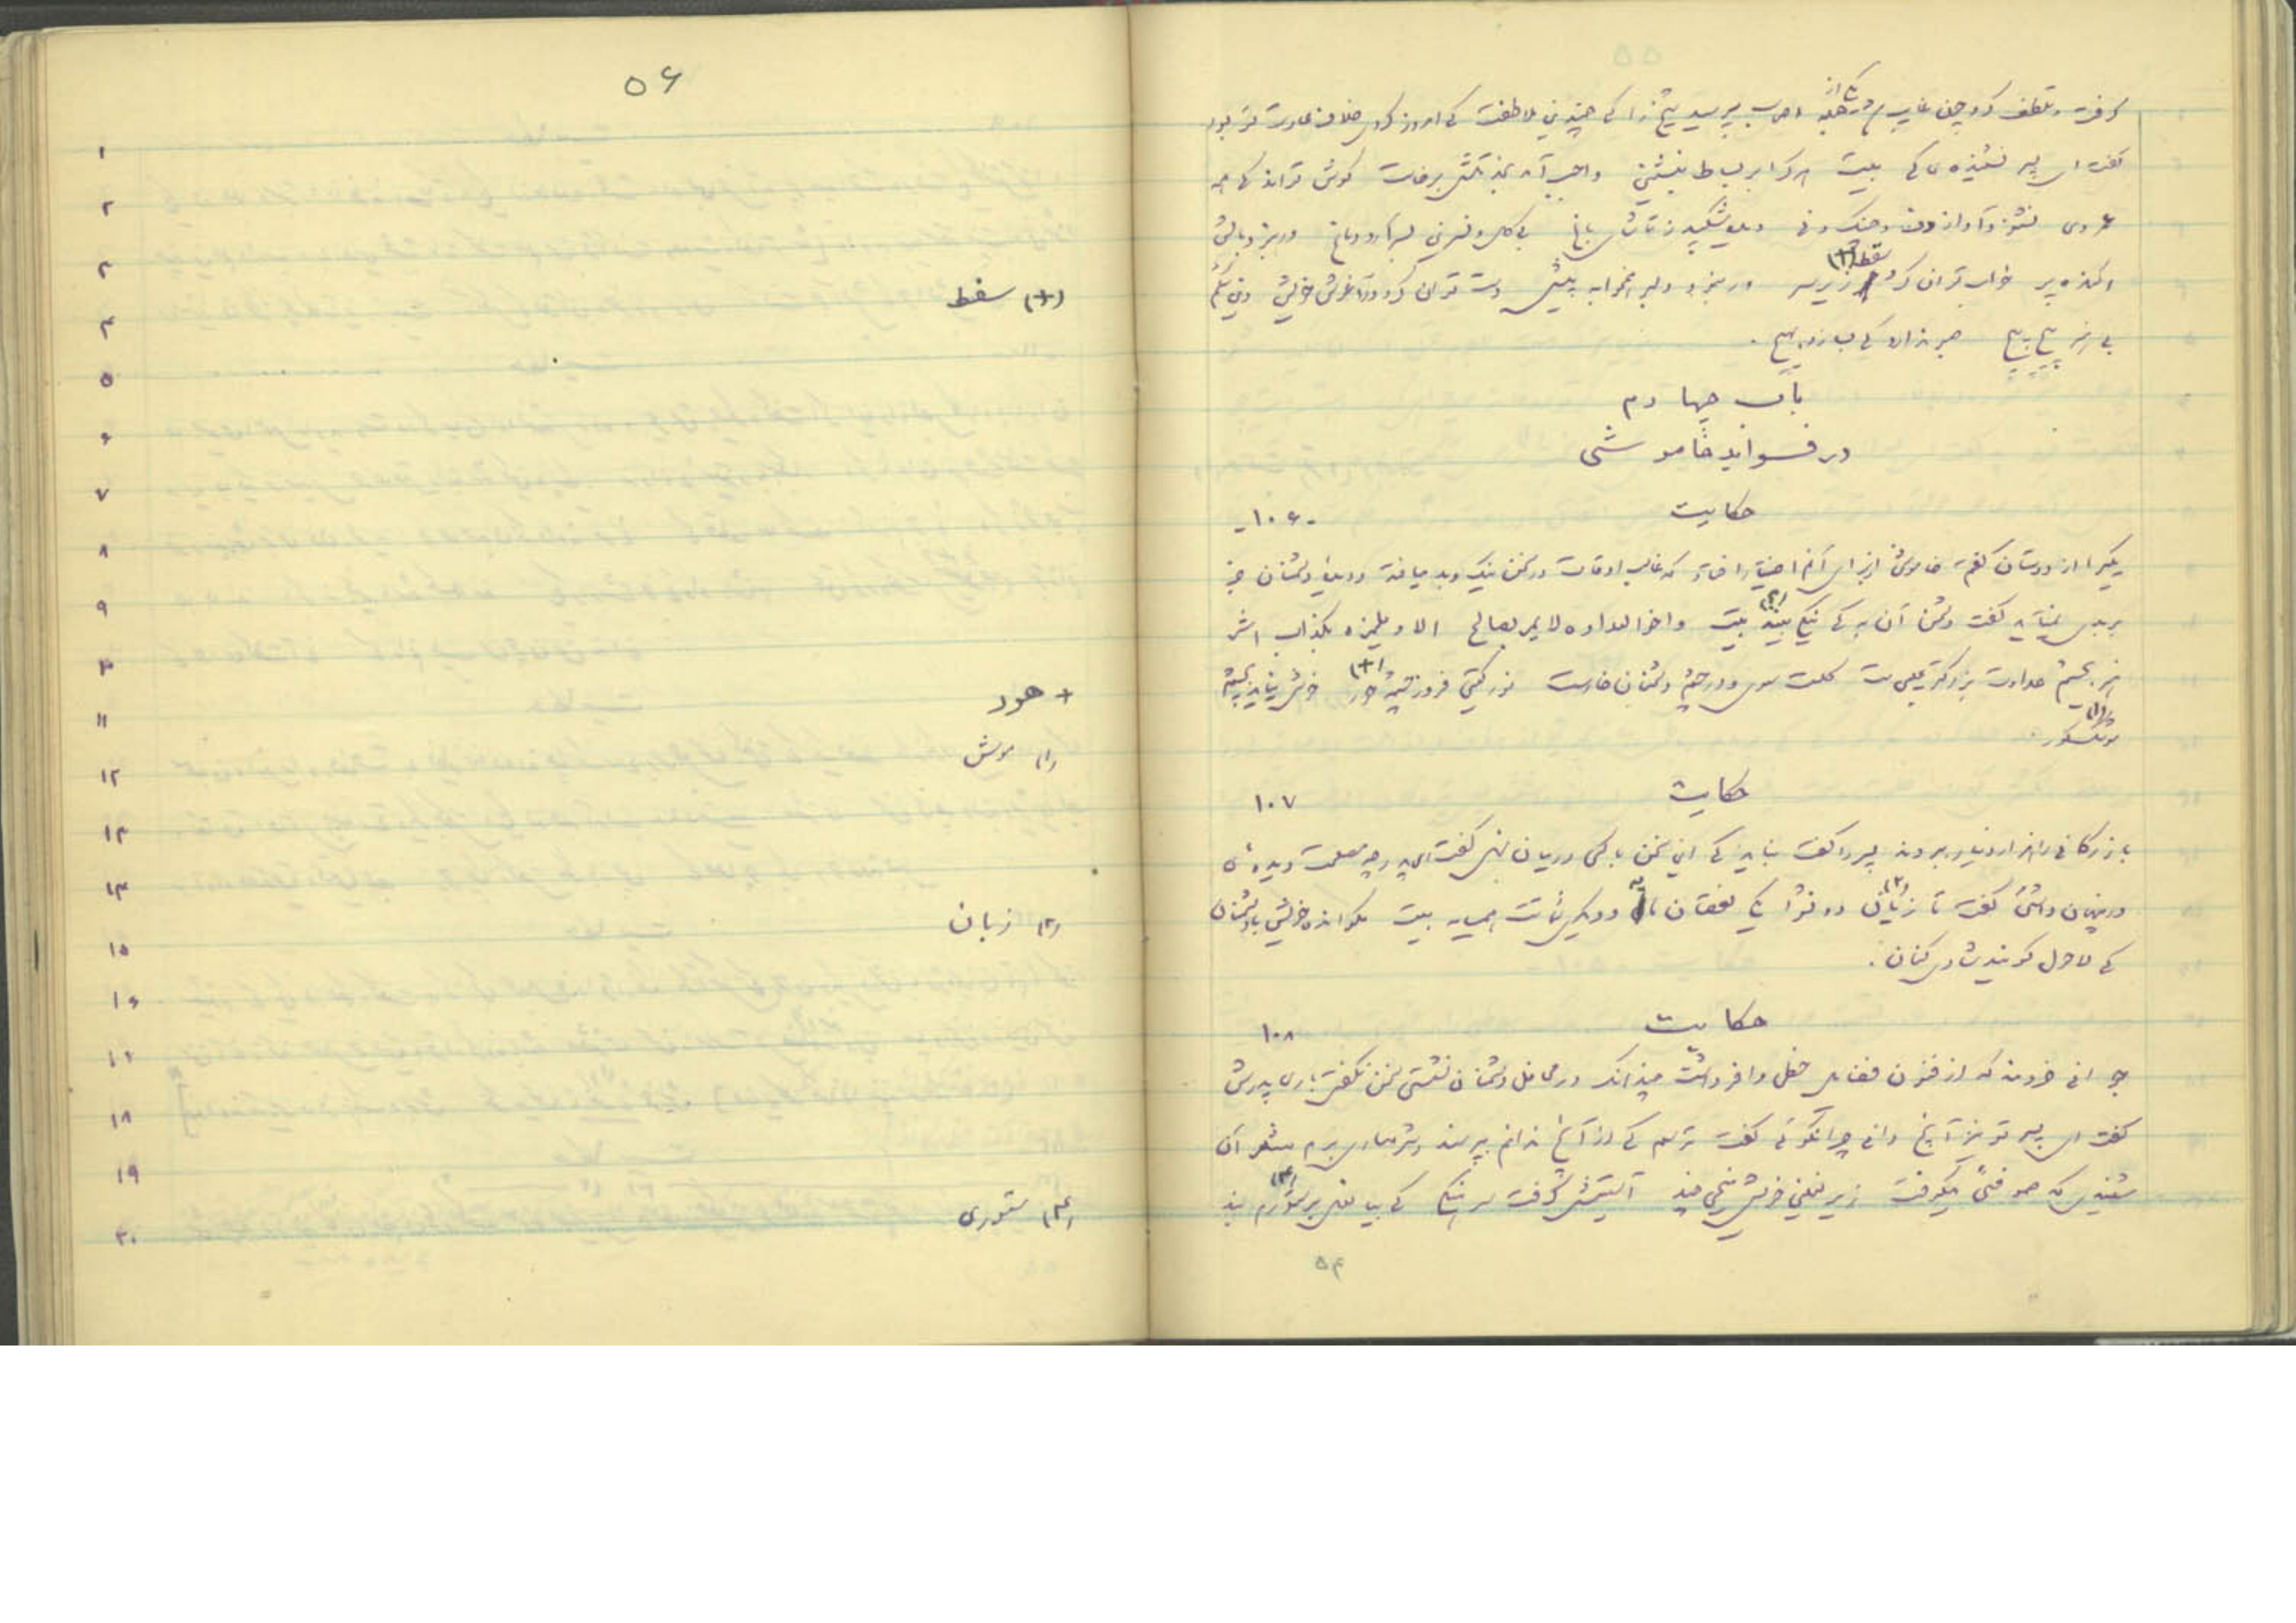 گرفت و تلطف کرد چون غایب شد یکی از اصحاب پرسید شیخ را کی چندین ملاطفت کی امروز کردی خلاف عادت تو بود
گفت ای پسر نشنیده‌ی کی بیت هر کرا بر بساط بنشینی واجب آمد بخدمتش برخاست گوش تواند که همه
عمر وی نشنود آواز دف و چنگ و نی دیده شکیبد ز تماشای باغ بی گل و نسرین بسر آرد دماغ ور نبود بالش
آکنده پر خواب توان کرد زیر سر ور نبود دلبر همخوابه پیش دست توان کرد در آغوش خویش وین شکم
بی هنر پیچ پیچ صبر ندارد کی بسازد بهیچ .
باب چهارم
در فواید خاموشی
حکایت
-۱۰۶-
یکیرا از دوستان گفتم خاموشی از برای آنم اختیار افتاد که غالب اوقات در سخن نیک و بد میافتد و دیدهٔ دشمنان جز
بر بدی نمیآید گفت دشمن آن به کی نیکی نبیند بیت واخو العداوه لا یمر بصالح الا و یلمزه بکذاب اشر
هنر بچشم عداوت بزرگتر عیبی ست گلست سعدی و در چشم دشمنان خارست نور گیتی فروز چشمهٔ خور (+) خوش نیاید بچشم
موشک کور (۱)
حکایت
۱۰۷
بازرگانی را هزار دینار بردند پسر را گفت نباید کی این سخن با کسی در میان نهی گفت ای پدر چه مصلحت دیده‌ئی
در پنهان داشتن گفت تا زیانی (۲) دو نشود یکی نقصان مایه و دیگری شماتت همسایه بیت مگو انده خویش با دشمنان
کی لاحول گویند شادی کنان .
حکایت
۱۰۸
جوانی خردمند که از فنون فضایل حظی وافر داشت چندانک در محافل دشمنان نشستی سخن نگفتی باری پدرش
گفت ای پسر تو نیز آنچ دانی چرا نگوئی گفت ترسم کی از آنچ ندانم بپرسند و شرمساری برم شعر آن
شنیدی که صوفئی میکوفت زیر نعلین خویش میخی چند آستینش گرفت سرهنگی کی بیا نعل بر ستورم (۳) بند
۵۴
۵۶
۱
۲
۳
(+) سقط
۴
۵
۶
۷
۸
۹
۱۰
+ هور
۱۱
(۱) موش
۱۲
۱۳
۱۴
(۲) زبان
۱۵
۱۶
۱۷
۱۸
۱۹
(۳) ستوری
۲۰